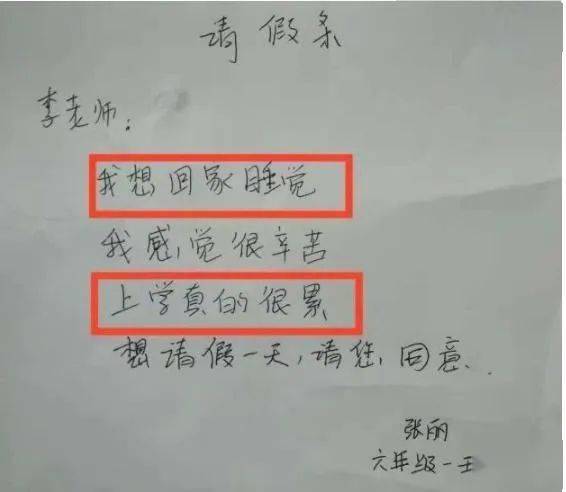 请假条
李老师:
我想回家睡觉
我感觉很辛苦
上学真的很累
想请假一天,请您同意.
张丽
六年级一王